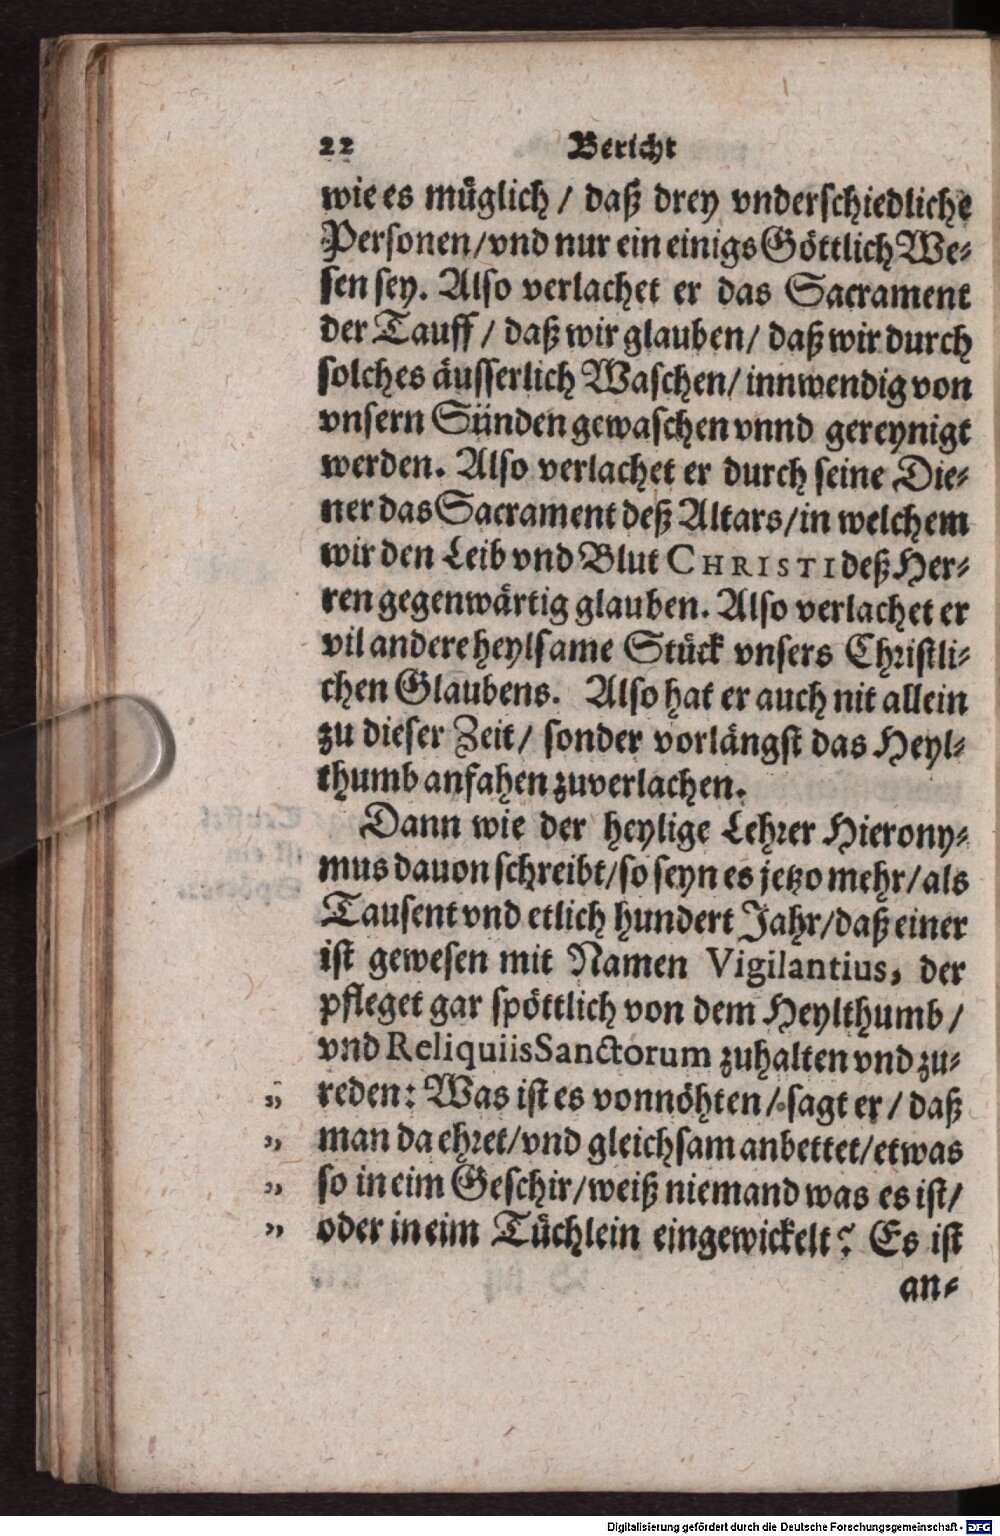 22 Bericht
wie es müglich / daß drey vnderschiedliche
Personen/vnd nur ein einigs Göttlich We-
sen sey. Also verlachet er das Sacrament
der Tauff / daß wir glauben/ daß wir durch
solches äusserlich Waschen/ innwendig von
vnsern Sünden gewaschen vnnd gereynigt
werden. Also verlachet er durch seine Die-
ner das Sacrament deß Altars/in welchem
wir den Leib vnd Blut CHRISTI deß Her-
ren gegenwärtig glauben. Also verlachet er
vil andere heylsame Stück vnsers Christli-
chen Glaubens. Also hat er auch nit allein
zu dieser Zeit/ sonder vorlängst das Heyl-
thumb anfahen zuverlachen.
Dann wie der heylige Lehrer Hierony-
mus dauon schreibt/so seyn es jetzo mehr/als
Tausent vnd etlich hundert Jahr/daß einer
ist gewesen mit Namen Vigilantius, der
pfleget gar spöttlich von dem Heylthumb /
vnd Reliquiis Sanctorum zuhalten vnd zu-
„ reden: Was ist es vonnöhten / sagt er / daß
„ man da ehret/vnd gleichsam anbettet/etwas
„ so in eim Geschir/weiß niemand was es ist/
„ oder in eim Tüchlein eingewickelt? Es ist
an-
Digitalisierung gefördert durch die Deutsche Forschungsgemeinschaft - DFG